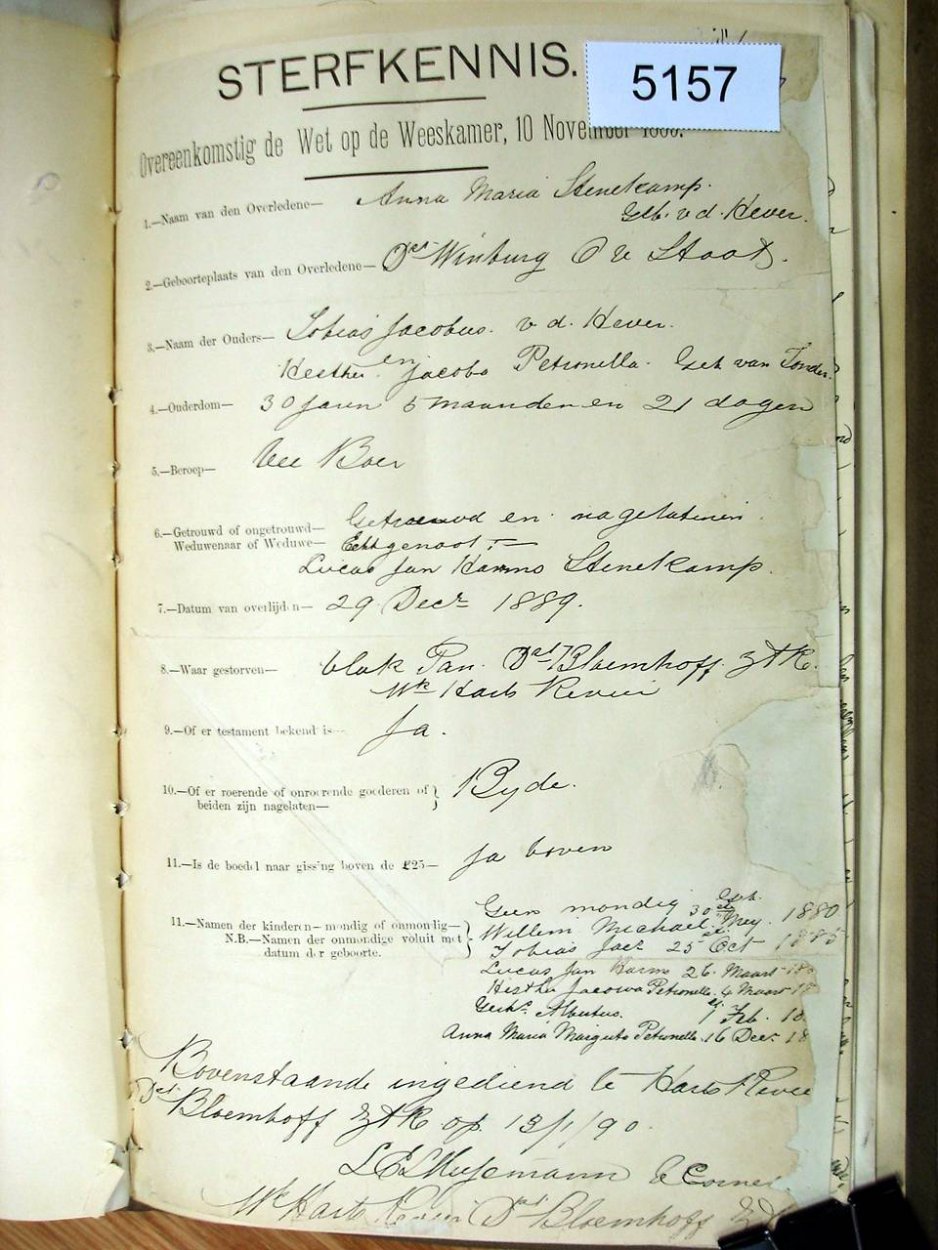 STERFKENNIS.
5157
Overeenkomstig de Wet op de Weeskamer, 10 November
1.—Naam van den Overledene— Anna Maria Stenekamp.
Geb. v d. Hever.
2.—Geboorteplaats van den Overledene— Dst Winburg O V Staat.
3.—Naam der Ouders— Tobias Jacobus. v d. Hever.
en
Hesther Jacoba Petronella. Geb van Tonder.
4.—Ouderdom— 30 Jaren 5 maanden en 21 dagen
5.—Beroep— Vee Boer
6.—Getrouwd of ongetrouwd— Getrouwd en nagelatenen
Weduwenaar of Weduwe— Echtgenoot :—
Lucas Jan Harms Stenekamp.
7.—Datum van overlijden— 29 Decr 1889.
8.—Waar gestorven— Vlak Pan. Dst Bloemhoff. ZAR.
Wk Harts Revier
9.—Of er testament bekend is— Ja.
10.—Of er roerende of onroerende goederen of } Byde.
beiden zijn nagelaten—
11.—Is de boedel naar gissing boven de £25— Ja boven
11.—Namen der kinderen—mondig of onmondig—
N.B.—Namen der onmondige voluit met
datum der geboorte.
Geen mondig Geb.
Willem Michael 30 Mey. 1880
Tobias Jacs 25 Oct 1885
Lucas Jan Harms 26 Maart
Hesther Jacowa Petronella. 4 Maart
Albertus. 1 Feb.
Anna Maria Margreta Petronella. 16 Decr
Bovenstaande ingediend te Harts Revier
Dst Bloemhoff ZAR op 13/1/90.
Wk Harts Revier Dst Bloemhoff